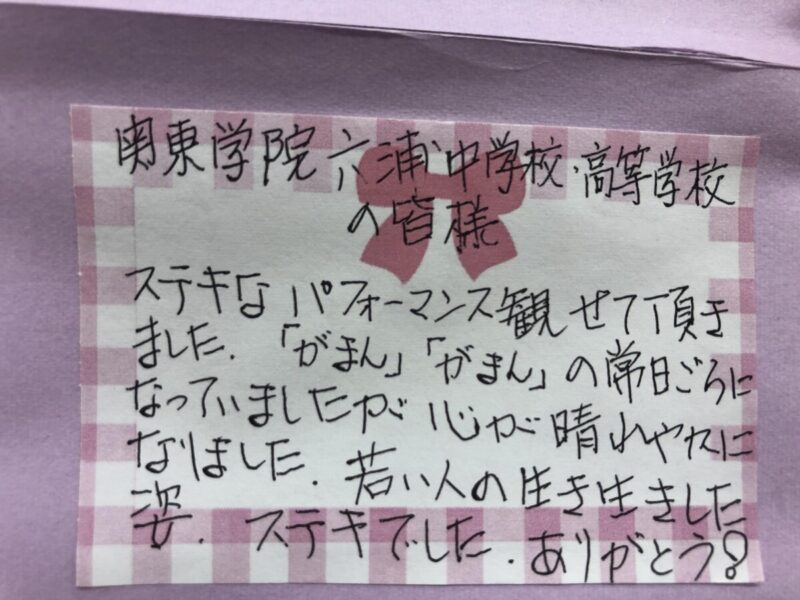 関東学院六浦中学校・高等学校
の皆様
ステキなパフォーマンス観せて頂き
ました.「がまん」「がまん」の常日ごろに
なっていましたが心が晴れやかに
なりました.若い人の生き生きした
姿.ステキでした.ありがとう!